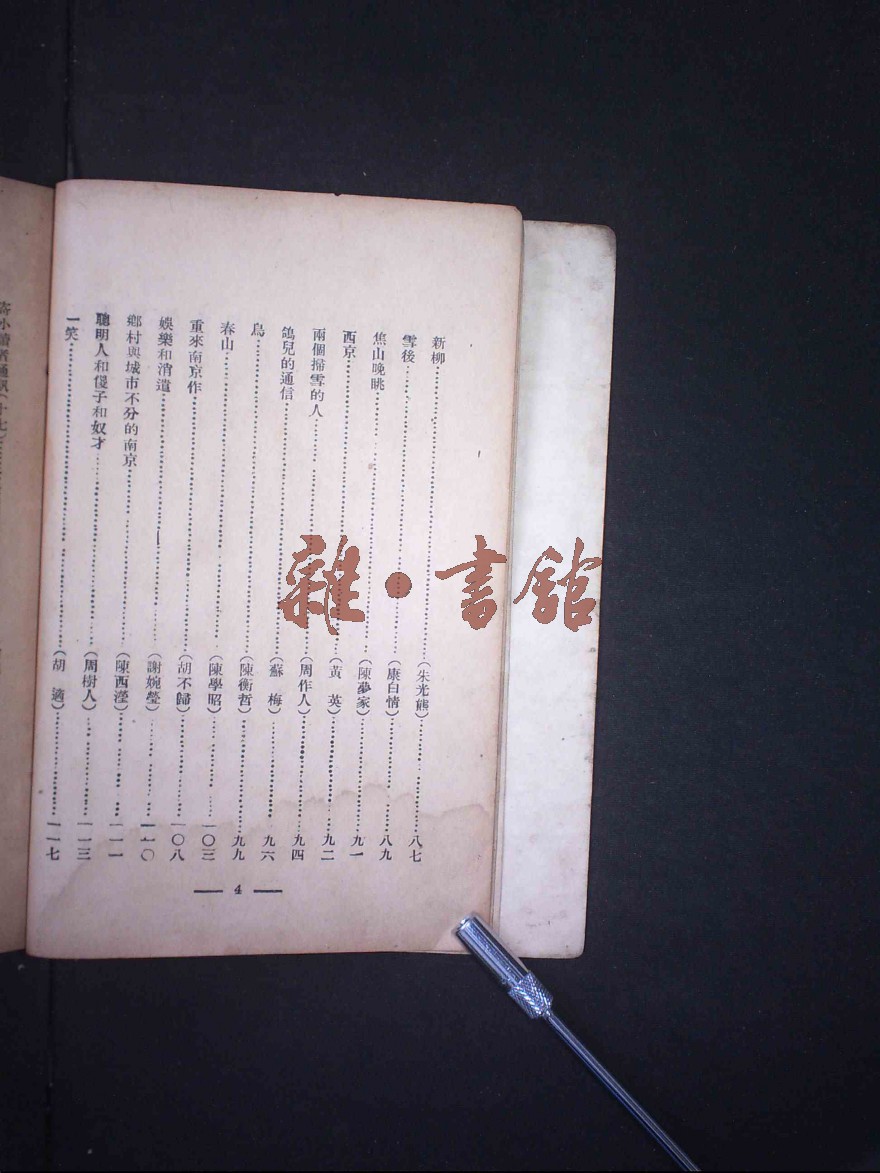 新柳……(朱光熊)……八七
雪後……(康白情)……八九
焦山晚眺……(陳夢家)……九一
西京……(黃　英)……九二
兩個掃雪的人……(周作人)……九四
鴿兒的通信……(蘇　梅)……九六
鳥……(陳衡哲)……九九
春山……(陳學昭)……一〇三
重來南京作……(胡不歸)……一〇八
娛樂和消遣……(謝婉瑩)……一一〇
鄉村與城市不分的南京……(陳西瀅)……一一一
聰明人和傻子和奴才……(周樹人)……一一三
一笑……(胡　適)……一一七
— 4 —
雜·書館